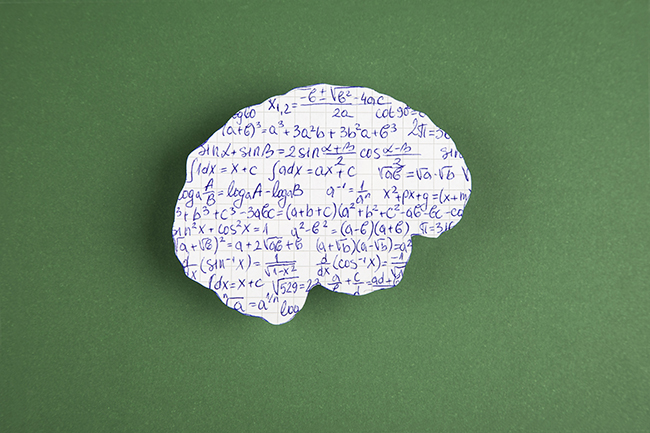 log60 x₁,₂ = (-b ± √(b² - 4ac))/2a cot 90 =
(a+b)³ = a³ + 3a²b + 3b²a + b³ 2π = 3
sinα + sinβ = 2 sin (α+β)/2 cos (α-β)/2 sin
∫1dx = x + c ∫adx = ax + c √ab = √a · √b
log a A/B = log a A - log a B a⁻¹ = 1/aⁿ x² + px + q = (x + x
³ + b³ + c³ - 3abc = (a+b+c)(a² + b² + c² - ab - bc - ca
sin²x + cos²x = 1 a² - b² = (a-b)(a+b) π = 3,1
(√a + √b)² = a + 2√ab + b (a+√b)(a-√b) = a²
d/dx (sin⁻¹x) = 1/√(1-x²) d/dx (cos⁻¹x) = -1/√1
∫dx = x + c √529 = 23 a/b + c/d = ad +
ⁿ√a = a^(1/n) log